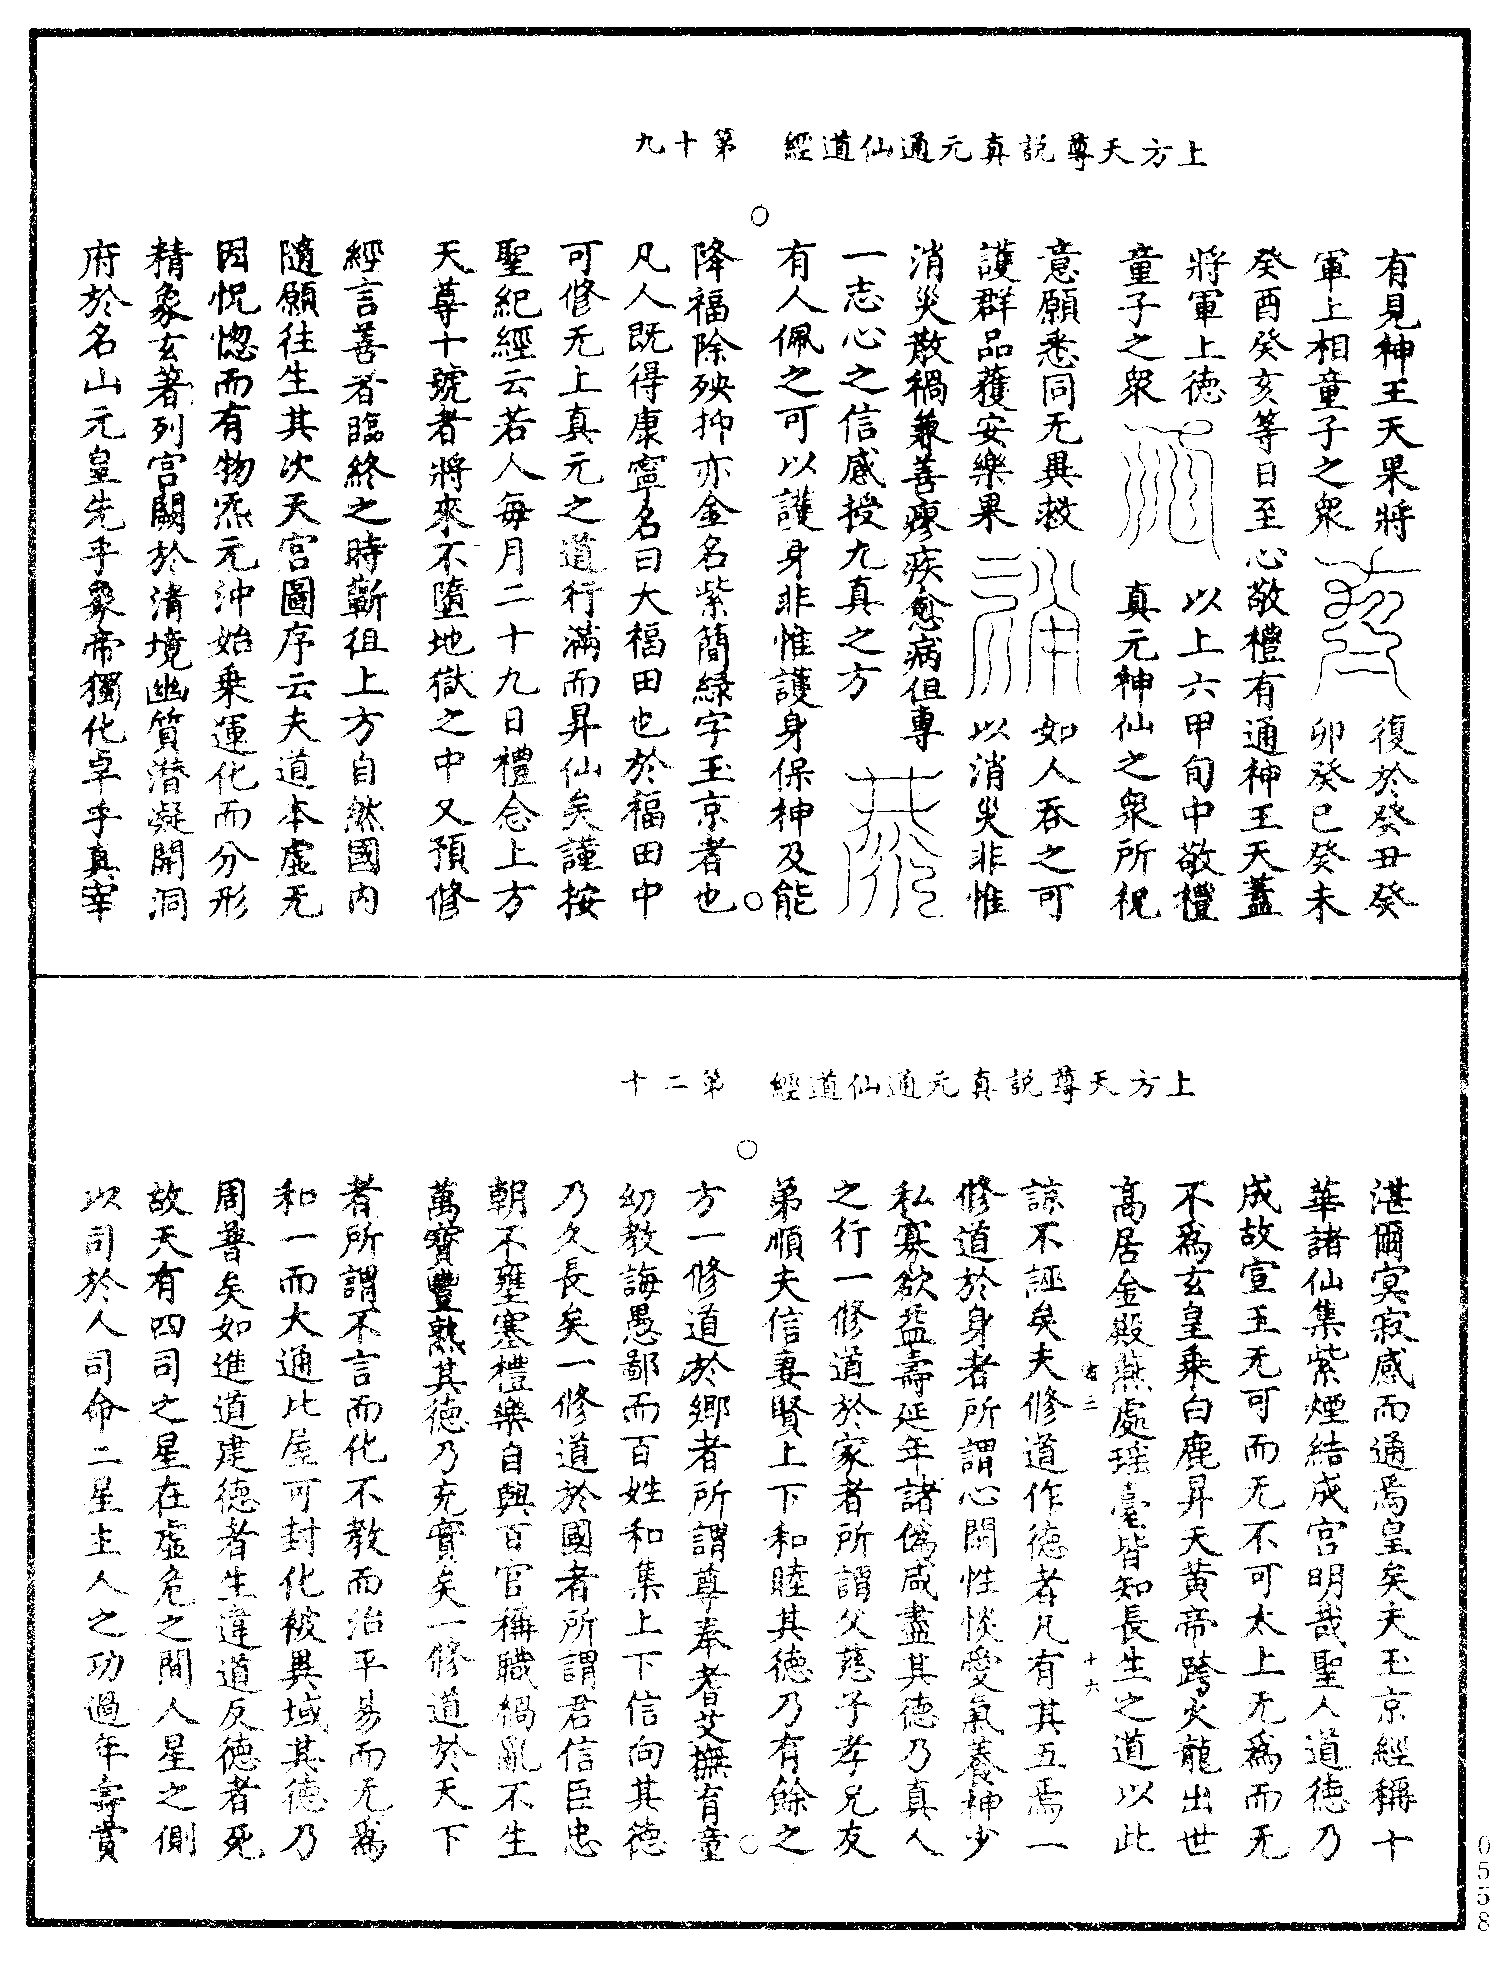 上方天尊說真元通仙道經　第十九
有見神王天果將
軍上相童子之衆
復於癸丑癸
卯癸巳癸未
癸酉癸亥等日至心敬禮有通神王天蓋
將軍上德
童子之衆
以上六甲旬中敬禮
真元神仙之衆所祝
意願悉同无異救
護群品獲安樂果
如人吞之可
以消災非惟
消災散禍兼善瘳疾愈病但專
一志心之信感授九真之方
有人佩之可以護身非惟護身保神及能
降福除殃抑亦金名紫簡綠字玉京者也
凡人既得康寧名曰大福田也於福田中
可修无上真元之道行滿而昇仙矣謹按
聖紀經云若人每月二十九日禮念上方
天尊十號者將來不墮地獄之中又預修
經言善者臨終之時蹔徂上方自然國內
隨願往生其次天宮圖序云夫道本虛无
因怳惚而有物炁元沖始乘運化而分形
精象玄著列宮闕於清境幽質潛凝開洞
府於名山元皇先乎象帝獨化卓乎真宰
上方天尊說真元通仙道經　第二十
湛爾冥寂感而通焉皇矣夫玉京經稱十
華諸仙集紫煙結成宮明哉聖人道德乃
成故宣王无可而无不可太上无爲而无
不爲玄皇乘白鹿昇天黃帝跨火龍出世
高居金殿燕處瑤臺皆知長生之道以此
十六
諒不誣矣夫修道作德者凡有其五焉一
修道於身者所謂心閑性惔愛氣養神少
私寡欲益壽延年諸僞咸盡其德乃真人
之行一修道於家者所謂父慈子孝兄友
弟順夫信妻賢上下和睦其德乃有餘之
方一修道於鄉者所謂尊奉耆艾撫育童
幼教誨愚鄙而百姓和集上下信向其德
乃久長矣一修道於國者所謂君信臣忠
朝不壅塞禮樂自興百官稱職禍亂不生
萬寶豐熟其德乃充實矣一修道於天下
者所謂不言而化不教而治平易而无爲
和一而大通比屋可封化被異域其德乃
周普矣如進道建德者生違道反德者死
故天有四司之星在虛危之間人星之側
以司於人司命二星主人之功過年壽賞
0558